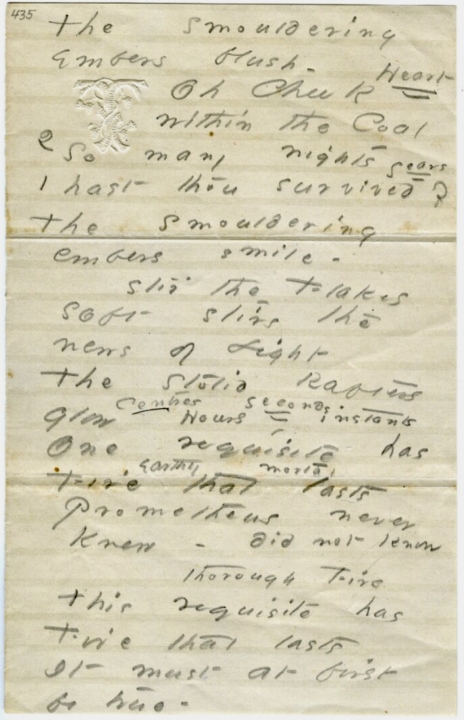 435
The Smouldering
Embers blush -
Heart
Oh Cheek
within the Coal
2 So many nights
years
1 hast thou survived?
The Smouldering
embers smile -
Stir the Flakes
Soft stirs the
news of Light
The Stolid Rafters
Centres Seconds
glow Hours instants
One requisite has
Earthly mortal
Fire that lasts
Prometheus never
Knew - did not know
thorough Fire
This requisite has
Fire that lasts
It must at first
be true -